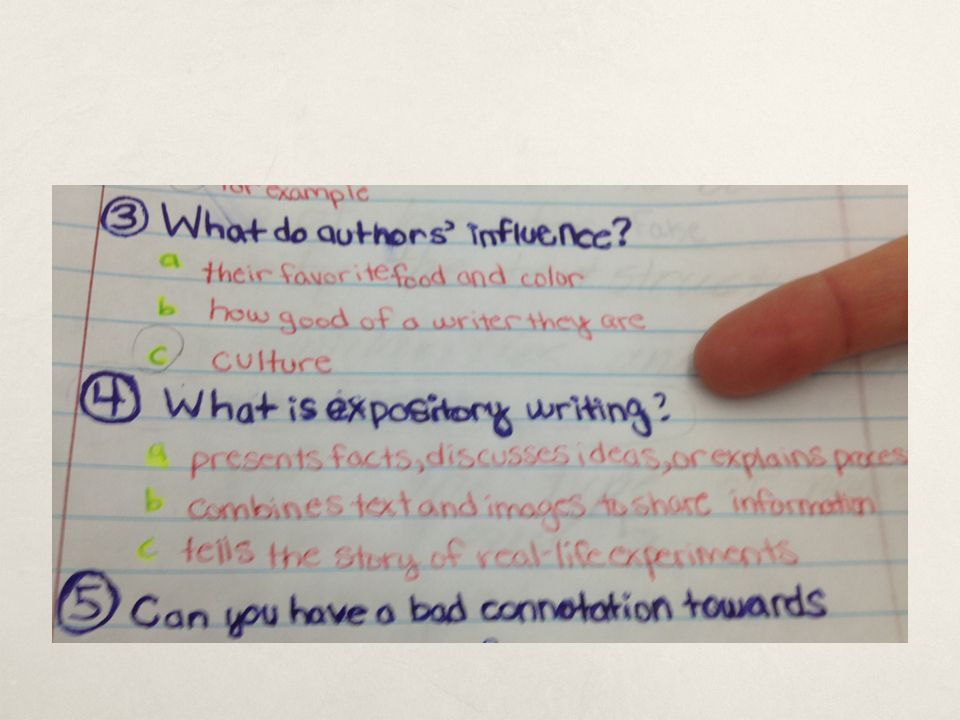 for example
③ What do authors' influence?
a their favorite food and color
b how good of a writer they are
c culture
④ What is expository writing?
a presents facts, discusses ideas, or explains proces
b combines text and images to share information
c tells the story of real-life experiments
⑤ Can you have a bad connotation towards